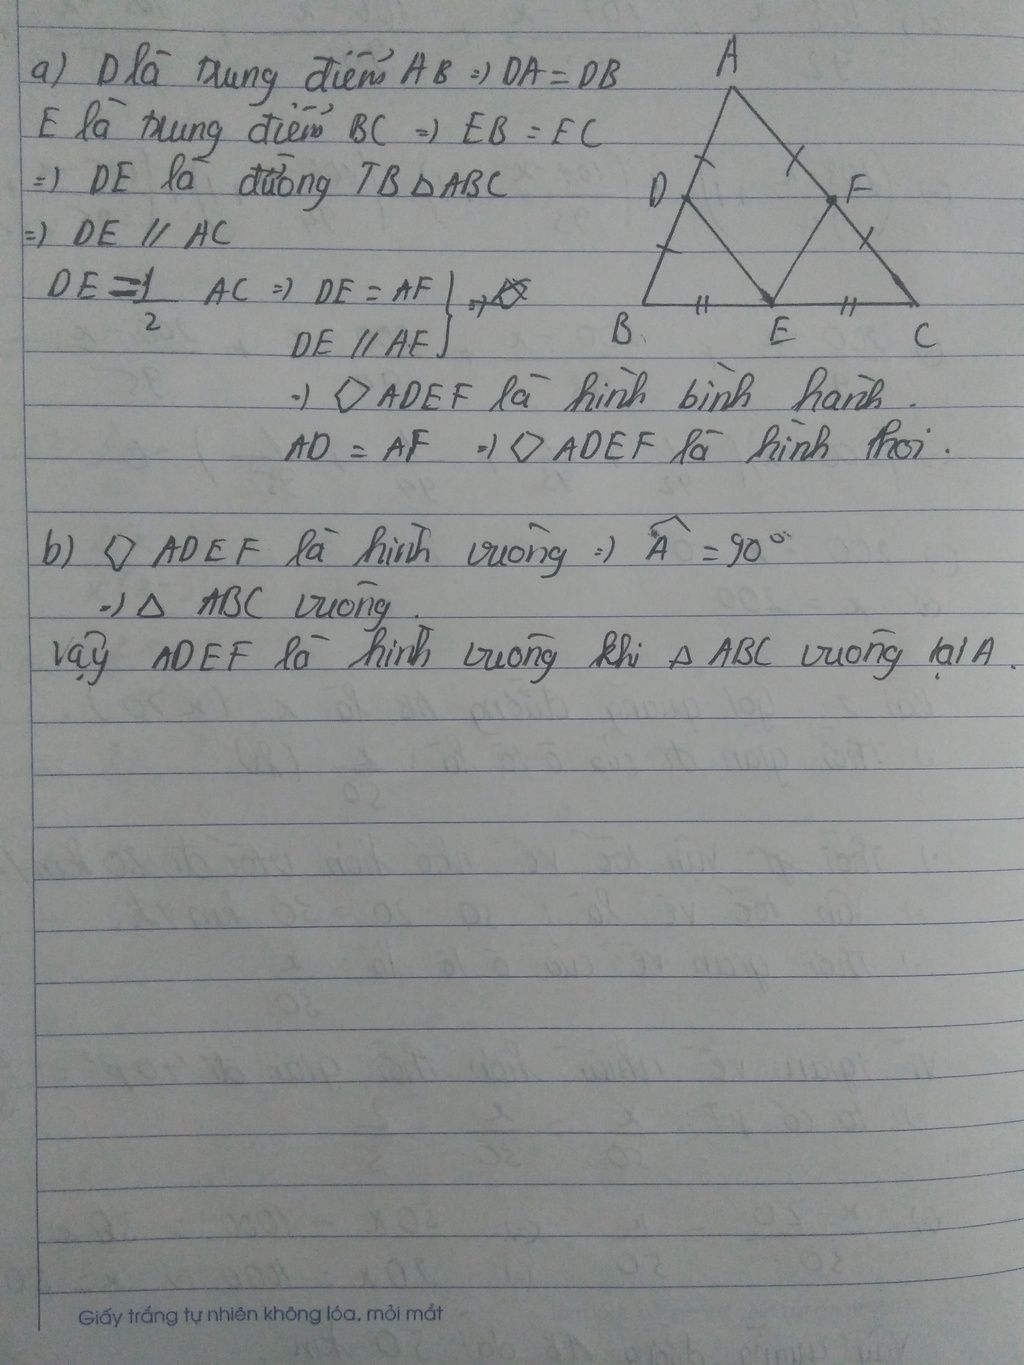 a) D là trung điểm AB => DA = DB
E là trung điểm BC => EB = EC
=> DE là đường TB Δ ABC
=> DE // AC
DE = 1/2 AC => DE = AF } =>
DE // AF
=> ◇ ADEF là hình bình hành.
AD = AF => ◇ ADEF là hình thoi.
b) ◇ ADEF là hình vuông => Â = 90°
=> Δ ABC vuông.
Vậy ADEF là hình vuông khi Δ ABC vuông tại A.
A
D
F
B
E
C
Giấy trắng tự nhiên không lóa, mỏi mắt